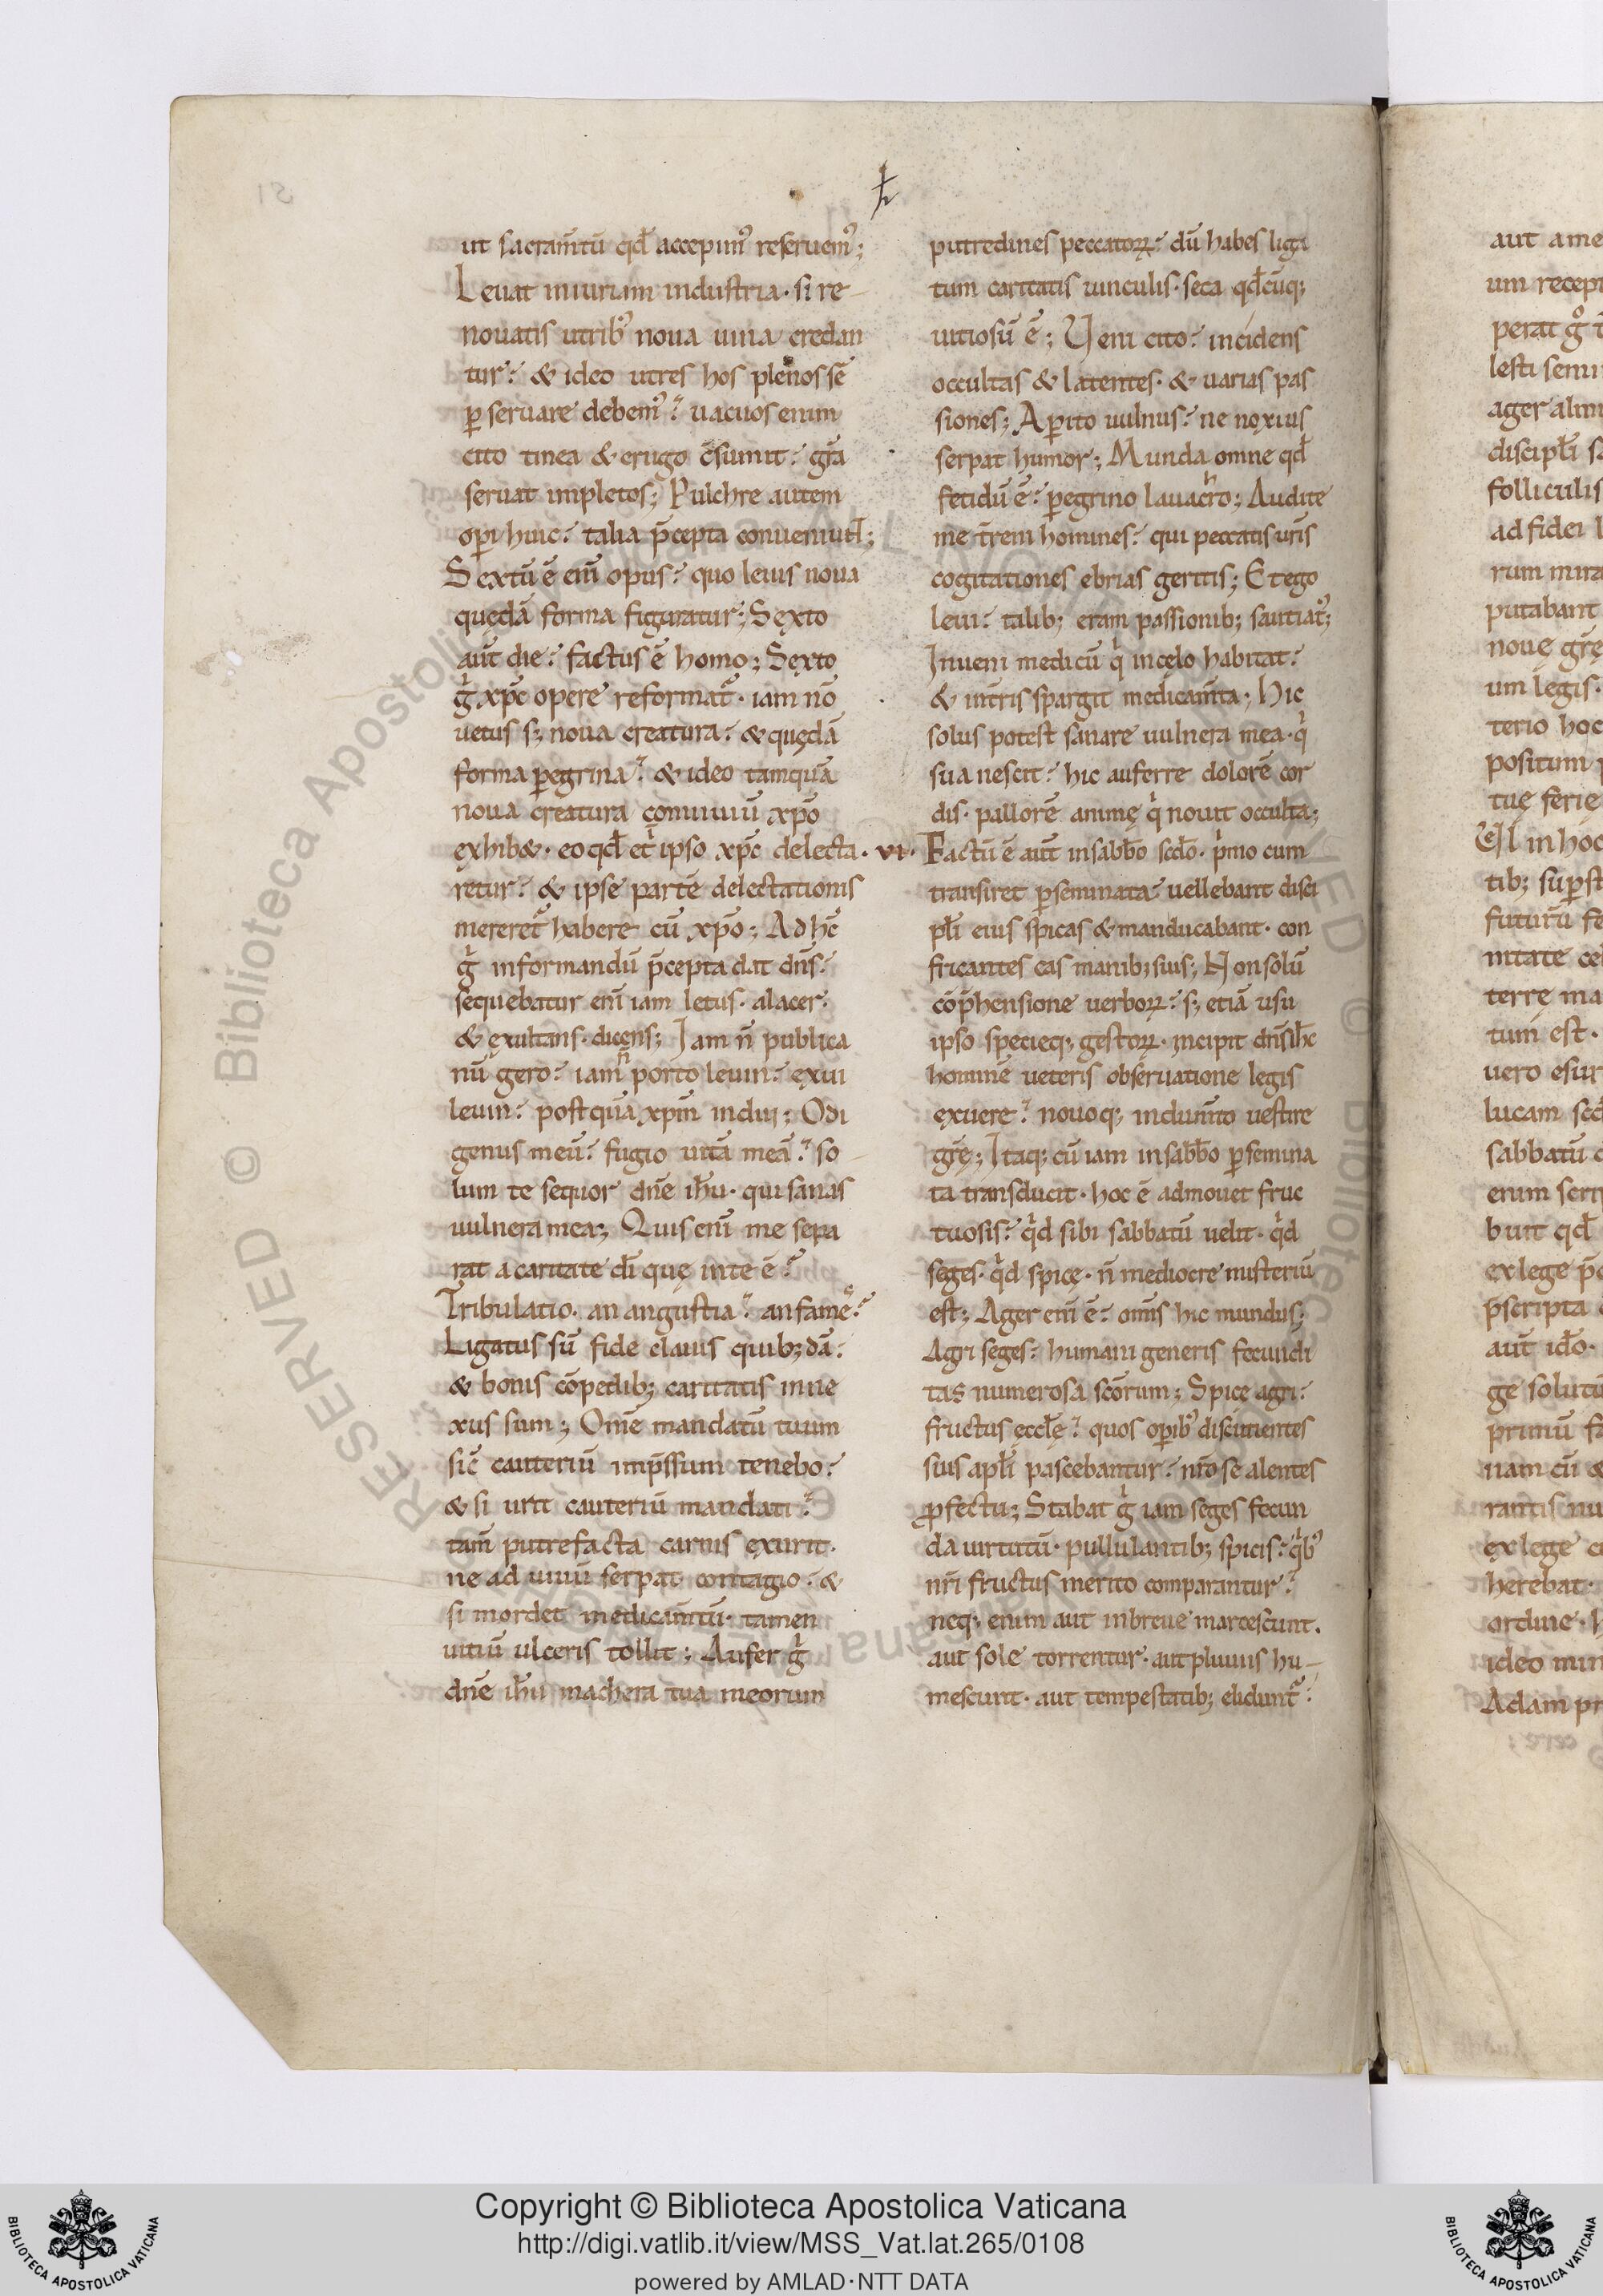 ut sacram̄tū qd̄ accepim᷒ reseruem᷒;
Leuat iniuriam industria· si re
nouatis utrib᷒ noua uina credan
tur? & ideo utres hos plenos sē
ꝑ seruare debem᷒? uacuos enim
cito tinea & erugo c̄sumit? gr̄a
seruat impletos; Pulchre autem
oꝑi huic? talia p̄cepta conueniunt;
Sextū ē eni᷃ opus? quo leuis noua
quędā forma figuratur; Sexto
aut̄ die? factus ē homo; Sexto
gͥ xp̄c opere reformat᷒· iam nō
uetus s; noua creatura? & quędā
forma ꝑegrina? & ideo tamquā
noua creatura conuiuiū xp̄o
exhib&· eo qd̄ etͥ ipso xp̄c delecta
retur? & ipse partē delectationis
mereret᷒ habere cū xp̄o; Ad hc̄
gͥ informandū p̄cepta dat dn̄s?
sequebatur eni᷃ iam letus· alacer·
& exultans· dicens; Iam n̄ publica
nū gero? iam n̄ porto leuin? exui
leuin? postquā xpm̄ indui; Odi
genus meū? fugio uitā meā? so
lum te sequor dn̄e ih̄u· qui sanas
uulnera mea; Quis eni᷃ me sepa
rat a caritate dī quę in te ē?
Tribulatio· an angustia? an famē?
Ligatus sū fide clauis quib; dā?
& bonis cōpedib; caritatis inne
xus sum; Om̄e mandatū tuum
sic̄ cauteriū imp̄ssum tenebo?
& si urit cauteriū mandati?
tam̄ putrefacta carnis exurit·
ne ad uiuū serpat contagio? &
si mordet medicam̄tū· tamen
uitiū ulceris tollit; Aufer gͥ
dn̄e ih̄u machera tua meorum
putredines peccatoꝝ? dū habes liga
tum caritatis uinculis· seca qd̄cūq;
uitiosū ē; Ueni cito? incidens
occultas & latentes· & uarias pas
siones; Aꝑito uulnus? ne noxius
serpat humor; Munda omne qd̄
fetidū ē? ꝑegrino lauacro; Audite
me t̄rem homines? qui peccatis ur̄is
cogitationes ebrias geritis; Et ego
leui? talib; eram passionib; sautiat᷒;
Inueni medicū qͥ in cęlo habitat?
& int̄ris spargit medicam̄ta; Hic
solus potest sanare uulnera mea· qͥ
sua nescit? hic auferre dolorē cor
dis· pallorē animę qͥ nouit occulta;
·vi· Factū ē aut̄ in sabb̄o scd̄o· pͥmo cum
transiret ꝑ seminata? uellebant disci
pl̄i eius spicas & manducabant· con
fricantes eas manib; suis; Non solū
cōp̄hensione uerboꝝ? s; etiā usu
ipso specieq; gestoꝝ· incipit dn̄s ih̄c
hominē ueteris obseruatione legis
exuere? nouoq; indum̄to uestire
gr̄ę; Itaq; cū iam in sabb̄o ꝑ semina
ta transducit· hoc ē admouet fruc
tuosis? qͥd sibi sabbatū uelit· qͥd
seges· qͥd spicę· n̄ mediocre misteriū
est; Ager eni᷃ ē? om̄is hic mundus;
Agri seges? humani generis fecundi
tas numerosa scōrum; Spice agri?
fructus ęccl̄ę? quos oꝑib᷒ discutientes
suis apl̄i pascebantur? nr̄o se alentes
ꝓfectu; Stabat gͥ iam seges fecun
da uirtutū· pullulantib; spicis? qͥb᷒
nr̄i fructus merito comparantur?
neq; enim aut in breue marcescunt·
aut sole torrentur· aut pluuiis hu
mescunt· aut tempestatib; elidunt᷒?
aut ame
um recept
lesti semi
ager alim
discipl̄i s
folliculis
ad fidei l
rum mira
putabant
nouę gr̄ę
um legis·
terio hoc
positum
tuę ferię
futurū fe
nitate cel
terrę ma
tum est·
uero esur
lucam scd̄
sabbatū
enim scri
buit qd̄
ex lege p̄
p̄scripta
aut̄ id̄o·
ge solutū
primū fa
nam cū &
rantis nu
ex lege
herebat·
ordine·
ideo min
Adam pr
Copyright © Biblioteca Apostolica Vaticana
http://digi.vatlib.it/view/MSS_Vat.lat.265/0108
powered by AMLAD·NTT DATA
BIBLIOTECA APOSTOLICA VATICANA
BIBLIOTECA APOSTOLICA VATICANA